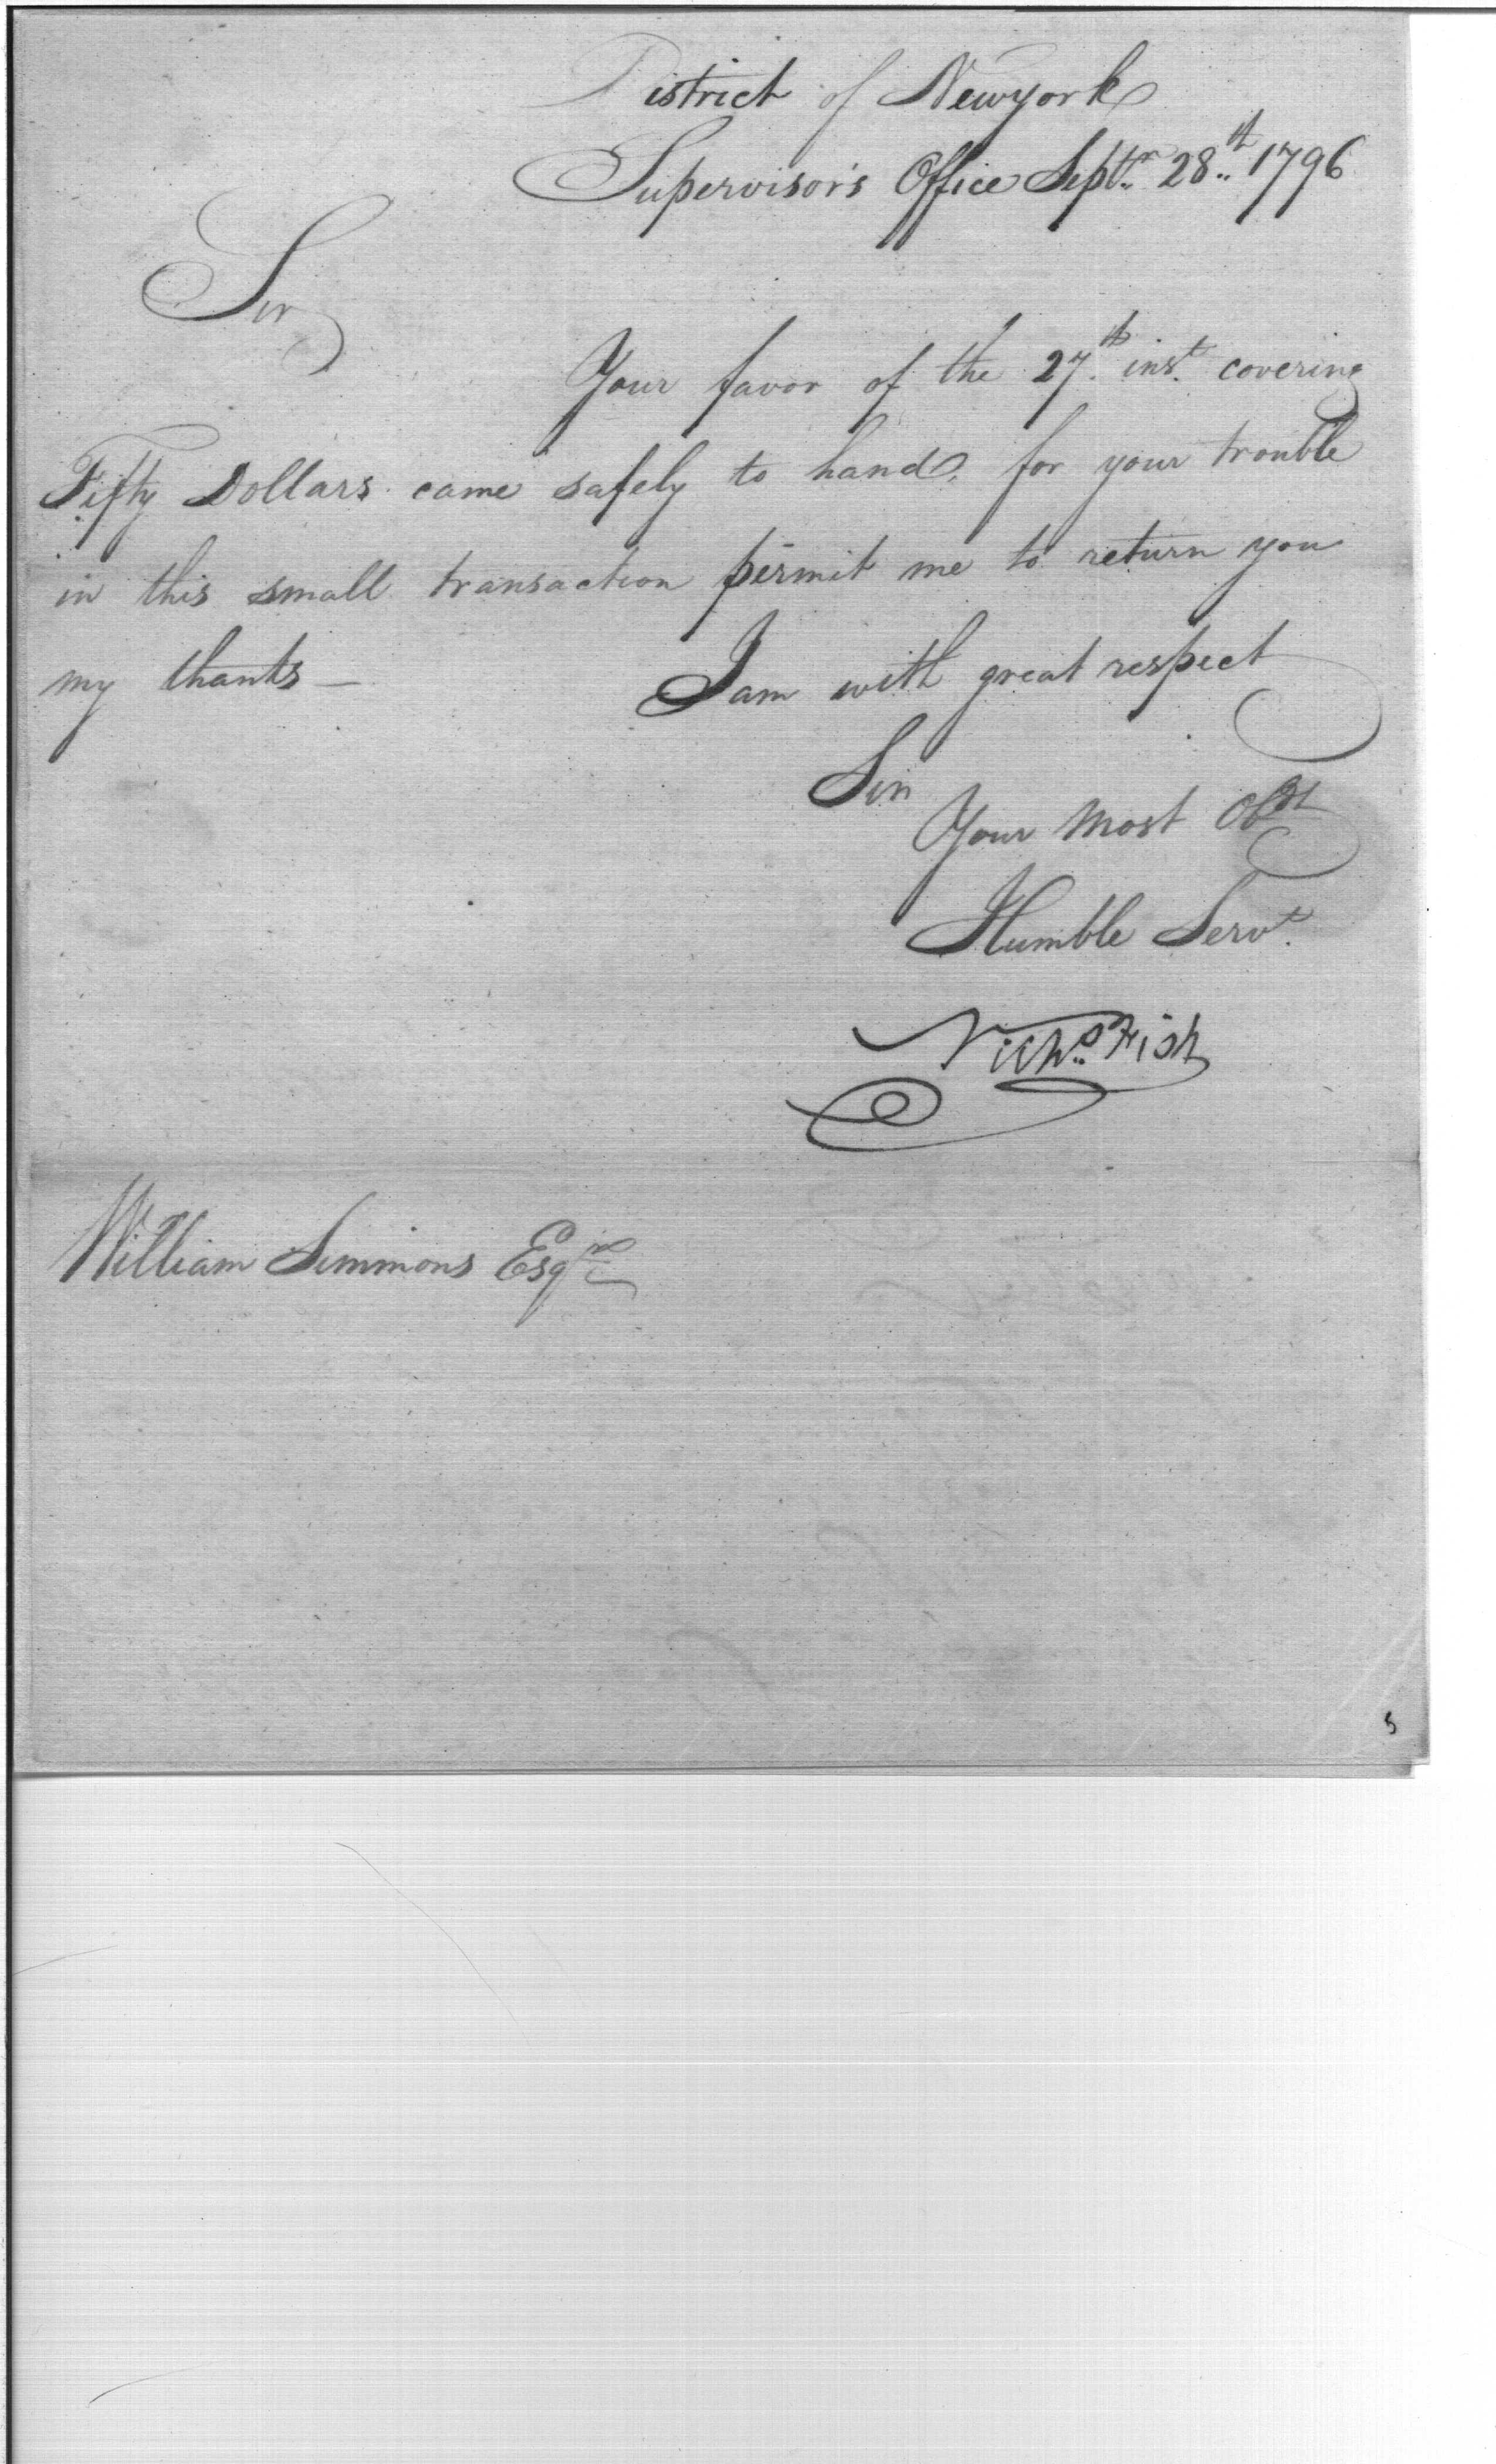 District of Newyork
Supervisor's Office Septr. 28th 1796
Sir
Your favor of the 27th inst. covering
Fifty Dollars came safely to hand, for your trouble
in this small transaction permit me to return you
my thanks —
I am with great respect
Sir
Your most Obdt
Humble Servt.
Nichs. Fish
William Simmons Esqre
5